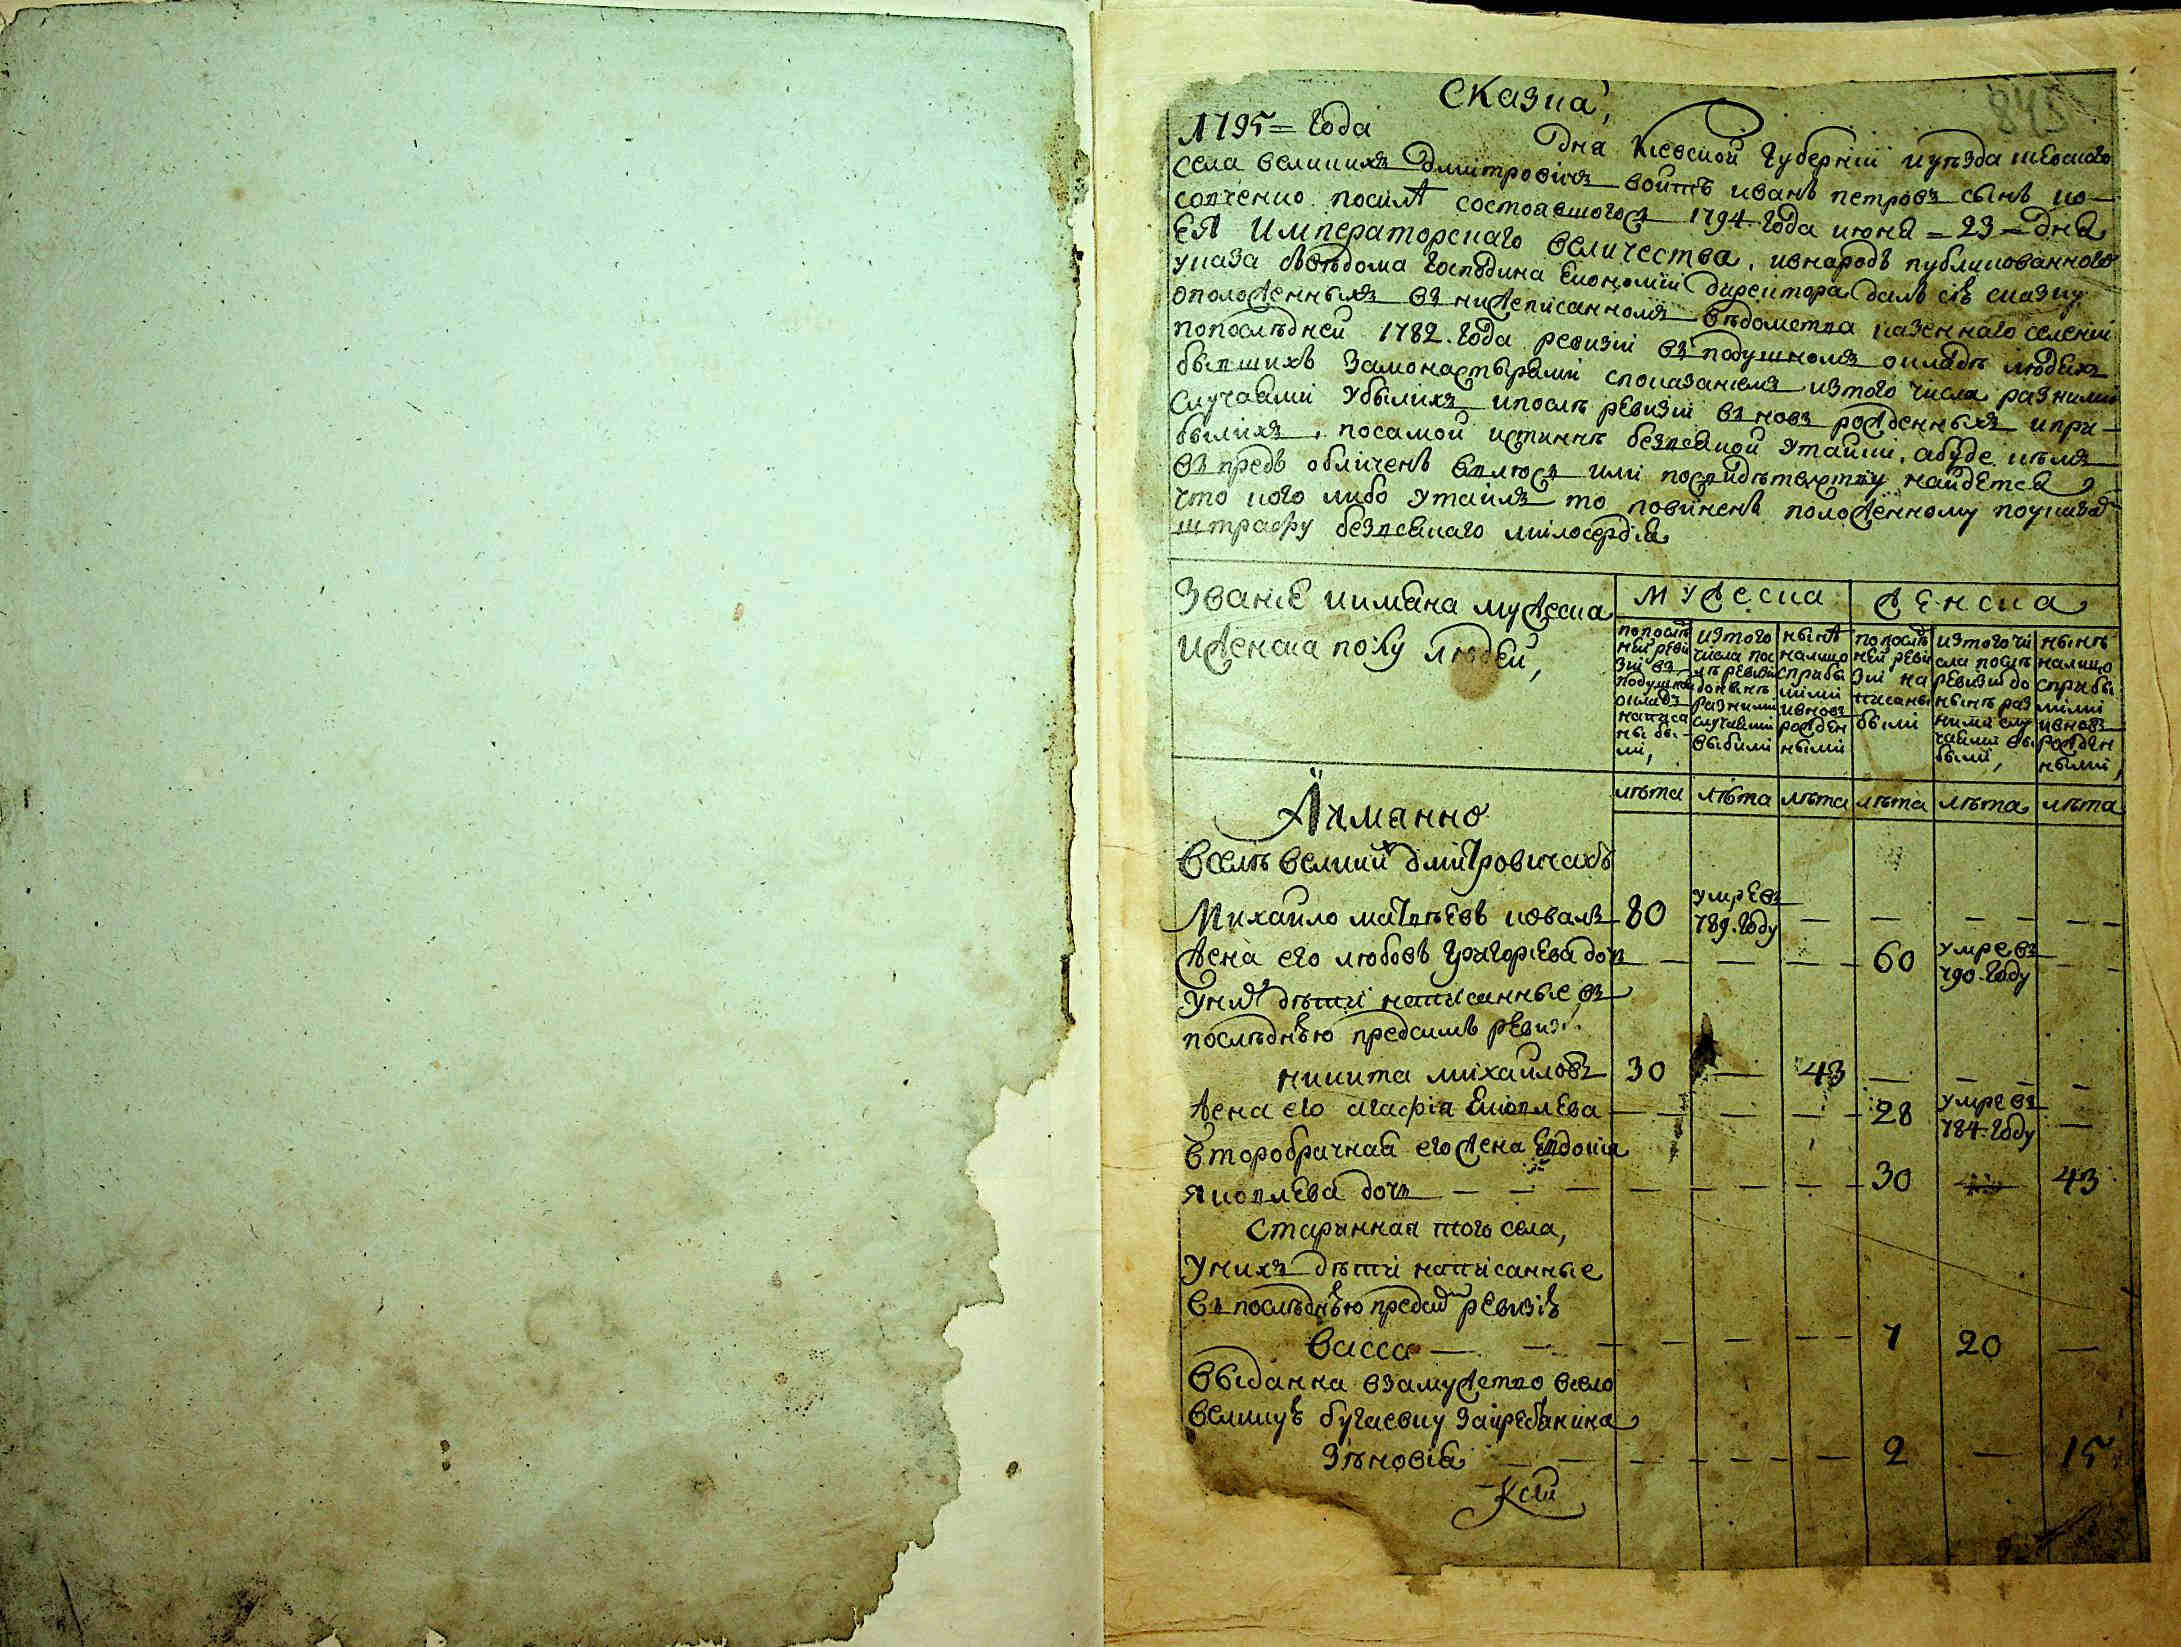 Сказка,
1795 = года
Дня Кіевской губерніи и уѣзда киевского
села великихъ дмитровичъ войтъ иванъ петровъ сынъ ко-
сопченко по силѣ состоявшогося 1794. года июня = 23 = дня
ЕЯ Императорскаго величества. и внародъ публикованного
указа свѣдома господина Економіи директора далъ сію сказку
о положенныхъ въ нижеписанномъ вѣдомства казеннаго селеніи
по последней 1782. года ревизіи въ подушномъ окладѣ людехъ
бывшихъ за монастырями с показаніемъ из того числа разними
случаями убылихъ и послѣ ревизіи вновъ рожденныхъ и при-
былихъ, по самой истиннѣ безъ всякой утайки. а буде кѣмъ
въпредъ обличенъ явлюся или по свидѣтелству найдется
что кого либо утаилъ то повиненъ положенному по указа
штрафу безъ всякаго милосердія
Званіе и имяна мужеска
и женска полу людей,
мужеска
женска
по послѣд
ней реви
зіи въ
подушной
окладъ
написа
ны бы-
ли,
из того
числа пос
лѣ ревизіи
до нынѣ
разними
случаями
выбили
нынѣ
налицо
с прибы
лими
и вновъ
рожден
ными
по послѣд
ней реви
зіи на
писаны
были
из того чи
сла послѣ
ревизіи до
нынѣ раз
ними слу
чаями вы
были,
нынѣ
налицо
с прибы
лими
и вновъ
рожден
ными,
лѣта лѣта лѣта лѣта лѣта лѣта
Аимянно
В селѣ великихъ дмитровичахъ
Михайло матвѣевъ коваль 80 умре въ 789. году
Жена его любовъ григориева доч 60 умре въ 790. году
У них дѣти написанные въ
последнюю предсимъ ревиз.
никита михайловъ 30 — 43
жена его агафія яковлева 28 умре въ 784. году
второбрачная его жена Евдокія
яковлева дочь 30 — 43
старинная того села,
У нихъ дѣти написанные
въ последнюю предсим ревизію
васса — 7 20 —
выданна в замужство всело
великую бугаевку за крестьянина
Зѣновія — 2 — 15